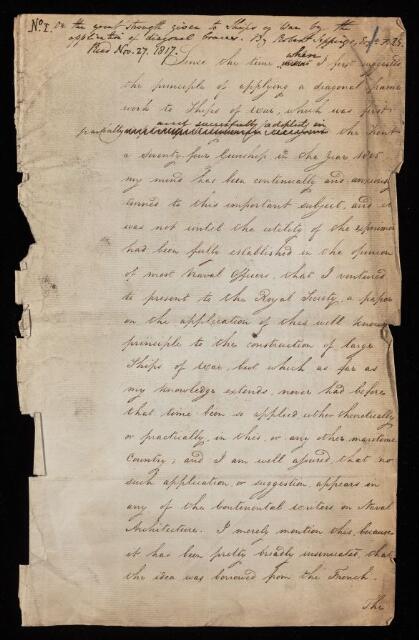 No. I. On the great strength given to Ships of War by the
application of diagonal braces. By Robert Seppings, Esqr F.R.S.
Read Nov. 27. 1817.
Since the time when I first suggested
the principle of applying a diagonal frame
work to Ships of War, which was first
partially and successfully adopted in
the Kent
a Seventy four Gunship in the Year 1805
my mind has been continually and anxiously
turned to this important subject, and it
was not until the utility of the experiment
had been fully established in the opinion
of most Naval Officers, that I ventured
to present to the Royal Society, a paper
on the application of this well known
principle to the construction of large
Ships of War, but which as far as
my knowledge extends, never had before
that time been so applied either theoretically
or practically, in this, or any other maritime
Country; and I am well assured, that no
such application or suggestion, appears in
any of the Continental writers on Naval
Architecture. I merely mention this, because
it has been pretty broadly insinuated, that
the idea was borrowed from the French.
The